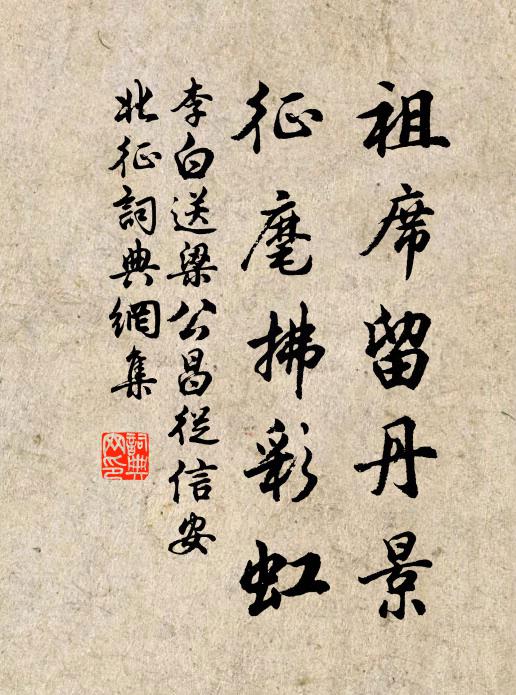 祖席留丹景
征麾拂彩虹
李白送梁公昌從信安
北征詞典網集
詞典网印